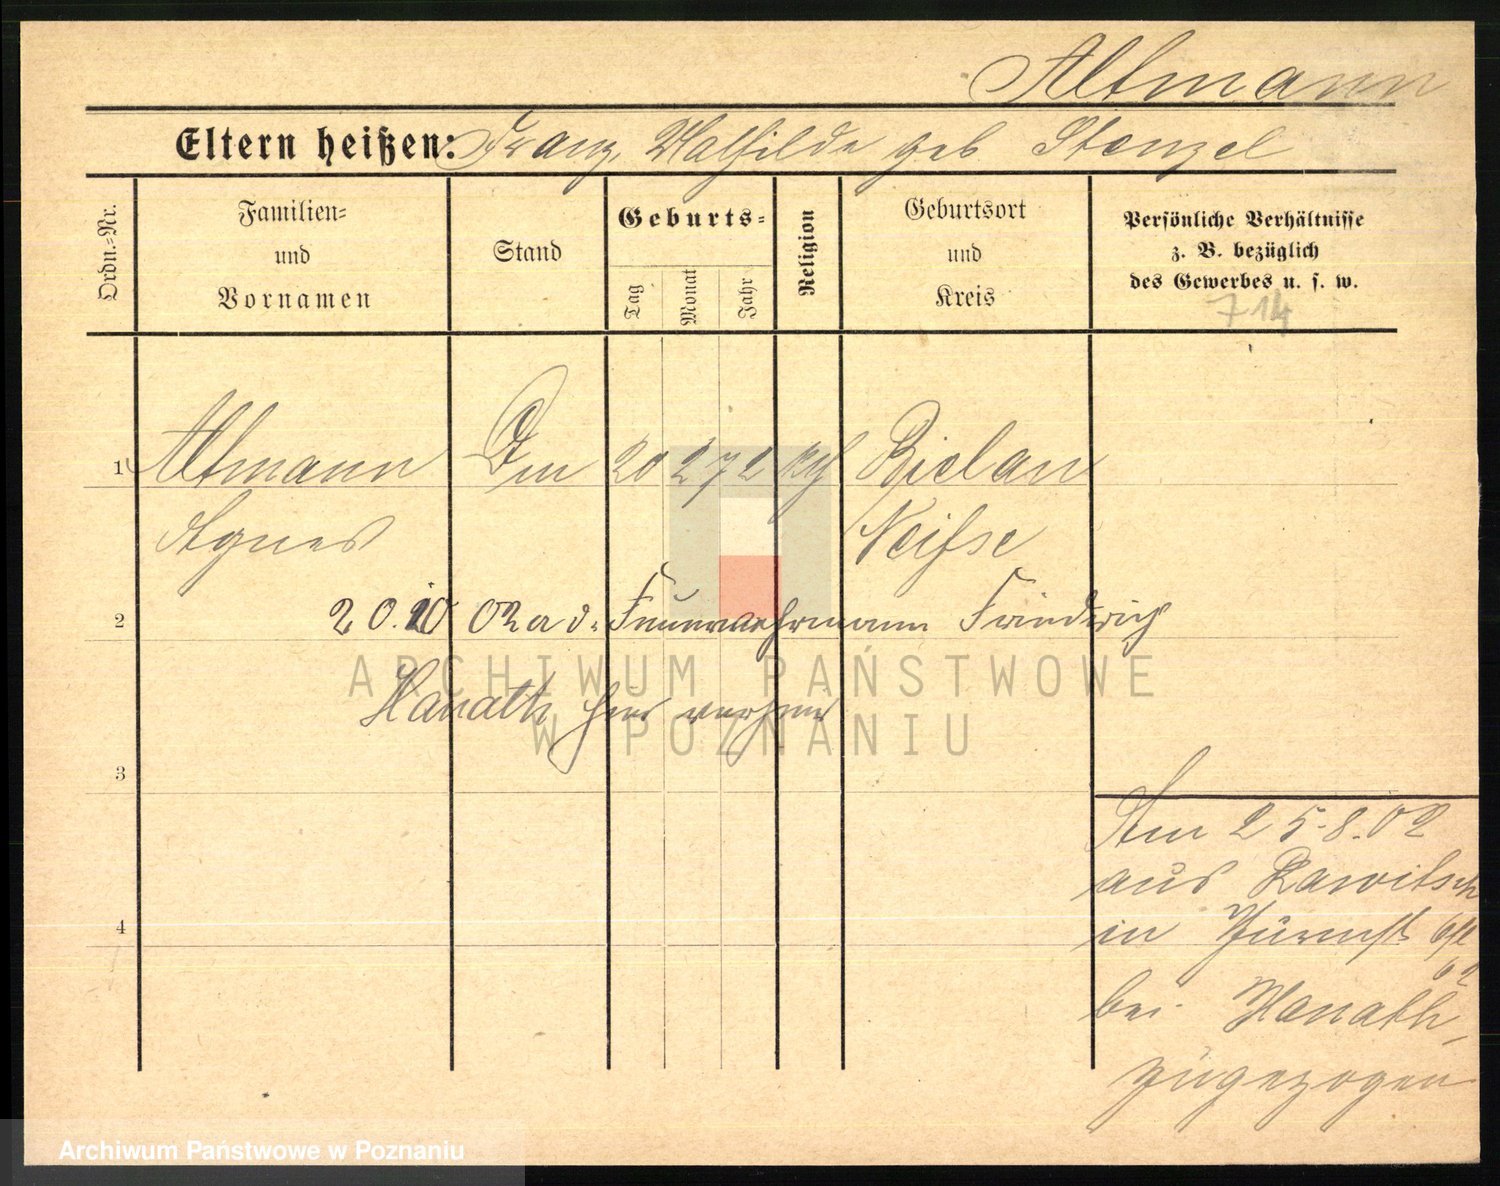 Altmann
Eltern heißen: Franz, Mathilde geb Stenzel
Ordn.-Nr.
Familien- und Vornamen
Stand
Geburts-
Tag
Monat
Jahr
Religion
Geburtsort und Kreis
Persönliche Verhältnisse
z. B. bezüglich
des Gewerbes u. s. w.
714
1 Altmann 20 2 72 kth Bielau
Agnes Neisse
2 20.10 02 a d. Feuerwehrmann Friedrich
Hanath hier verh
3
4
Am 25.8.02
aus Rawitsch
in
bei Hanath
zugezogen
ARCHIWUM PAŃSTWOWE
W POZNANIU
Archiwum Państwowe w Poznaniu